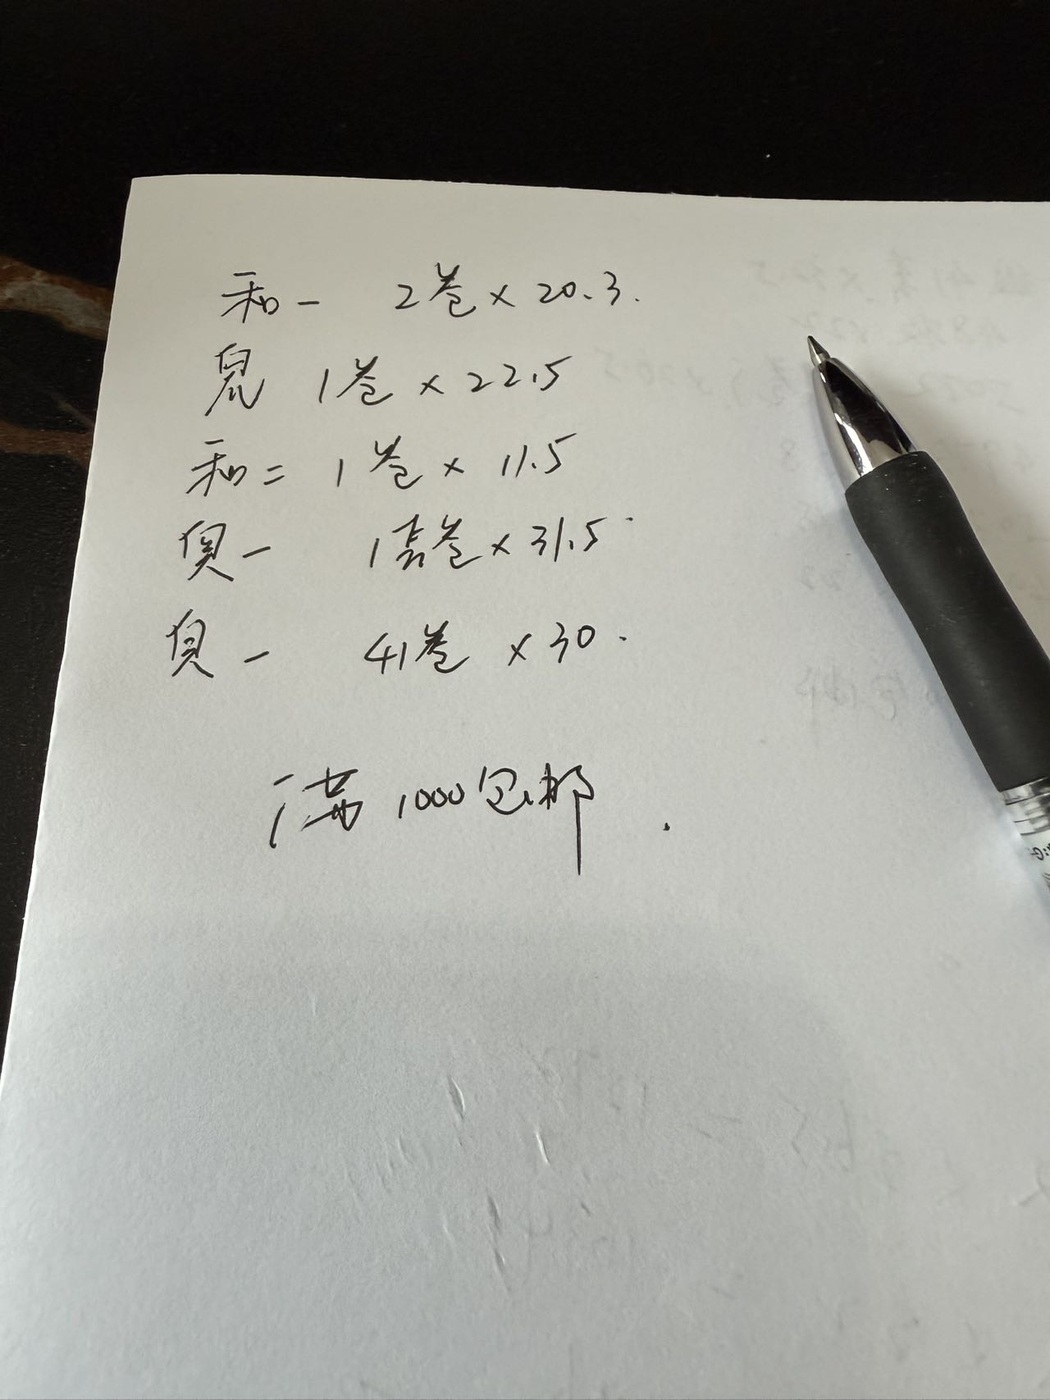 和一 2卷×20.3.
鼠 1卷×22.5
和二 1卷×11.5
貝一 1套卷×31.5
貝一 41卷×30.
满1000包邮.